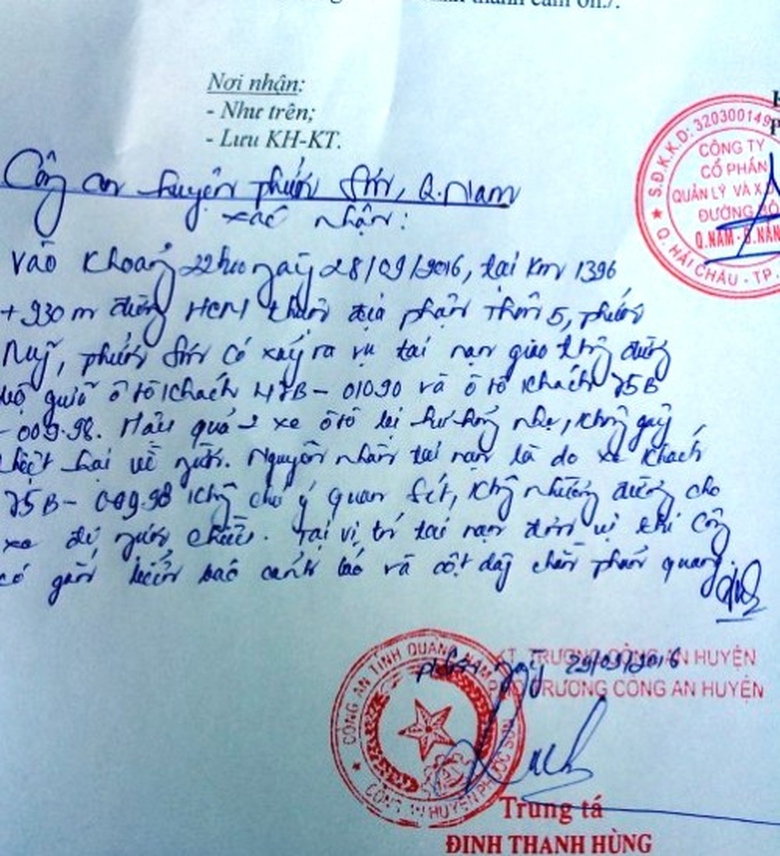 thành cảm ơn./.
Nơi nhận:
- Như trên;
- Lưu KH-KT.
S.Đ.K.K.D: 320300149
CÔNG TY
CỔ PHẦN
QUẢN LÝ VÀ X
ĐƯỜNG BỘ
Q.NAM - Đ.NẴN
Q. HẢI CHÂU - TP.
Công an huyện Phước Sơn, Q.Nam
xác nhận:
Vào khoảng 22h00 ngày 28/09/2016, tại Km 1396
+ 930 m đường HCM thuộc địa phận Thôn 5, Phước
Mỹ, Phước Sơn có xảy ra vụ tai nạn giao thông đường
bộ giữa ô tô khách 47B-01090 và ô tô khách 75B
-009.98. Hậu quả 2 xe ô tô bị hư hỏng nhẹ, không gây
thiệt hại về người. Nguyên nhân tai nạn là do xe khách
75B-009.98 không chú ý quan sát, không nhường đường cho
xe đi ngược chiều. Tại vị trí tai nạn đơn vị thi công
có gắn biển báo cảnh báo và cột dây chằn phản quang.
ngày 29/09/2016
KT. TRƯỞNG CÔNG AN HUYỆN
PHÓ TRƯỞNG CÔNG AN HUYỆN
CÔNG AN TỈNH QUẢNG NAM
CÔNG AN HUYỆN PHƯỚC SƠN
Trung tá
ĐINH THANH HÙNG